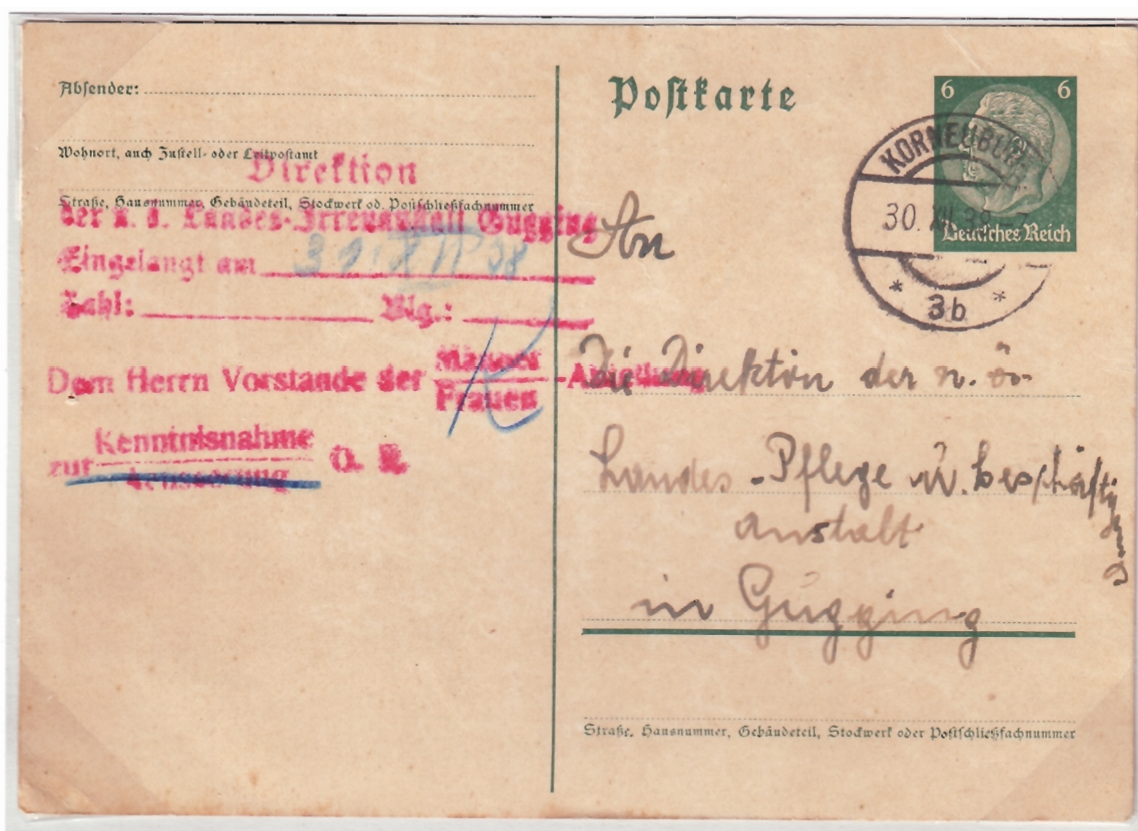 Absender:
Wohnort, auch Zustell- oder Leitpostamt
Straße, Hausnummer, Gebäudeteil, Stockwerk od. Postschließfachnummer
Direktion
der n. ö. Landes-Irrenanstalt Gugging
Eingelangt am 31. XII 38
Zahl: Blg.:
Dem Herrn Vorstande der Männer
Frauen -Abteilung
zur Kenntnisnahme
Äusserung
Postkarte
6 6
Deutsches Reich
KORNEUBURG
30. XII. 38
* 3b *
An
Die Direktion der n. ö.
Landes-Pflege u. beschäftigungs
anstalt
in Gugging
Straße, Hausnummer, Gebäudeteil, Stockwerk oder Postschließfachnummer